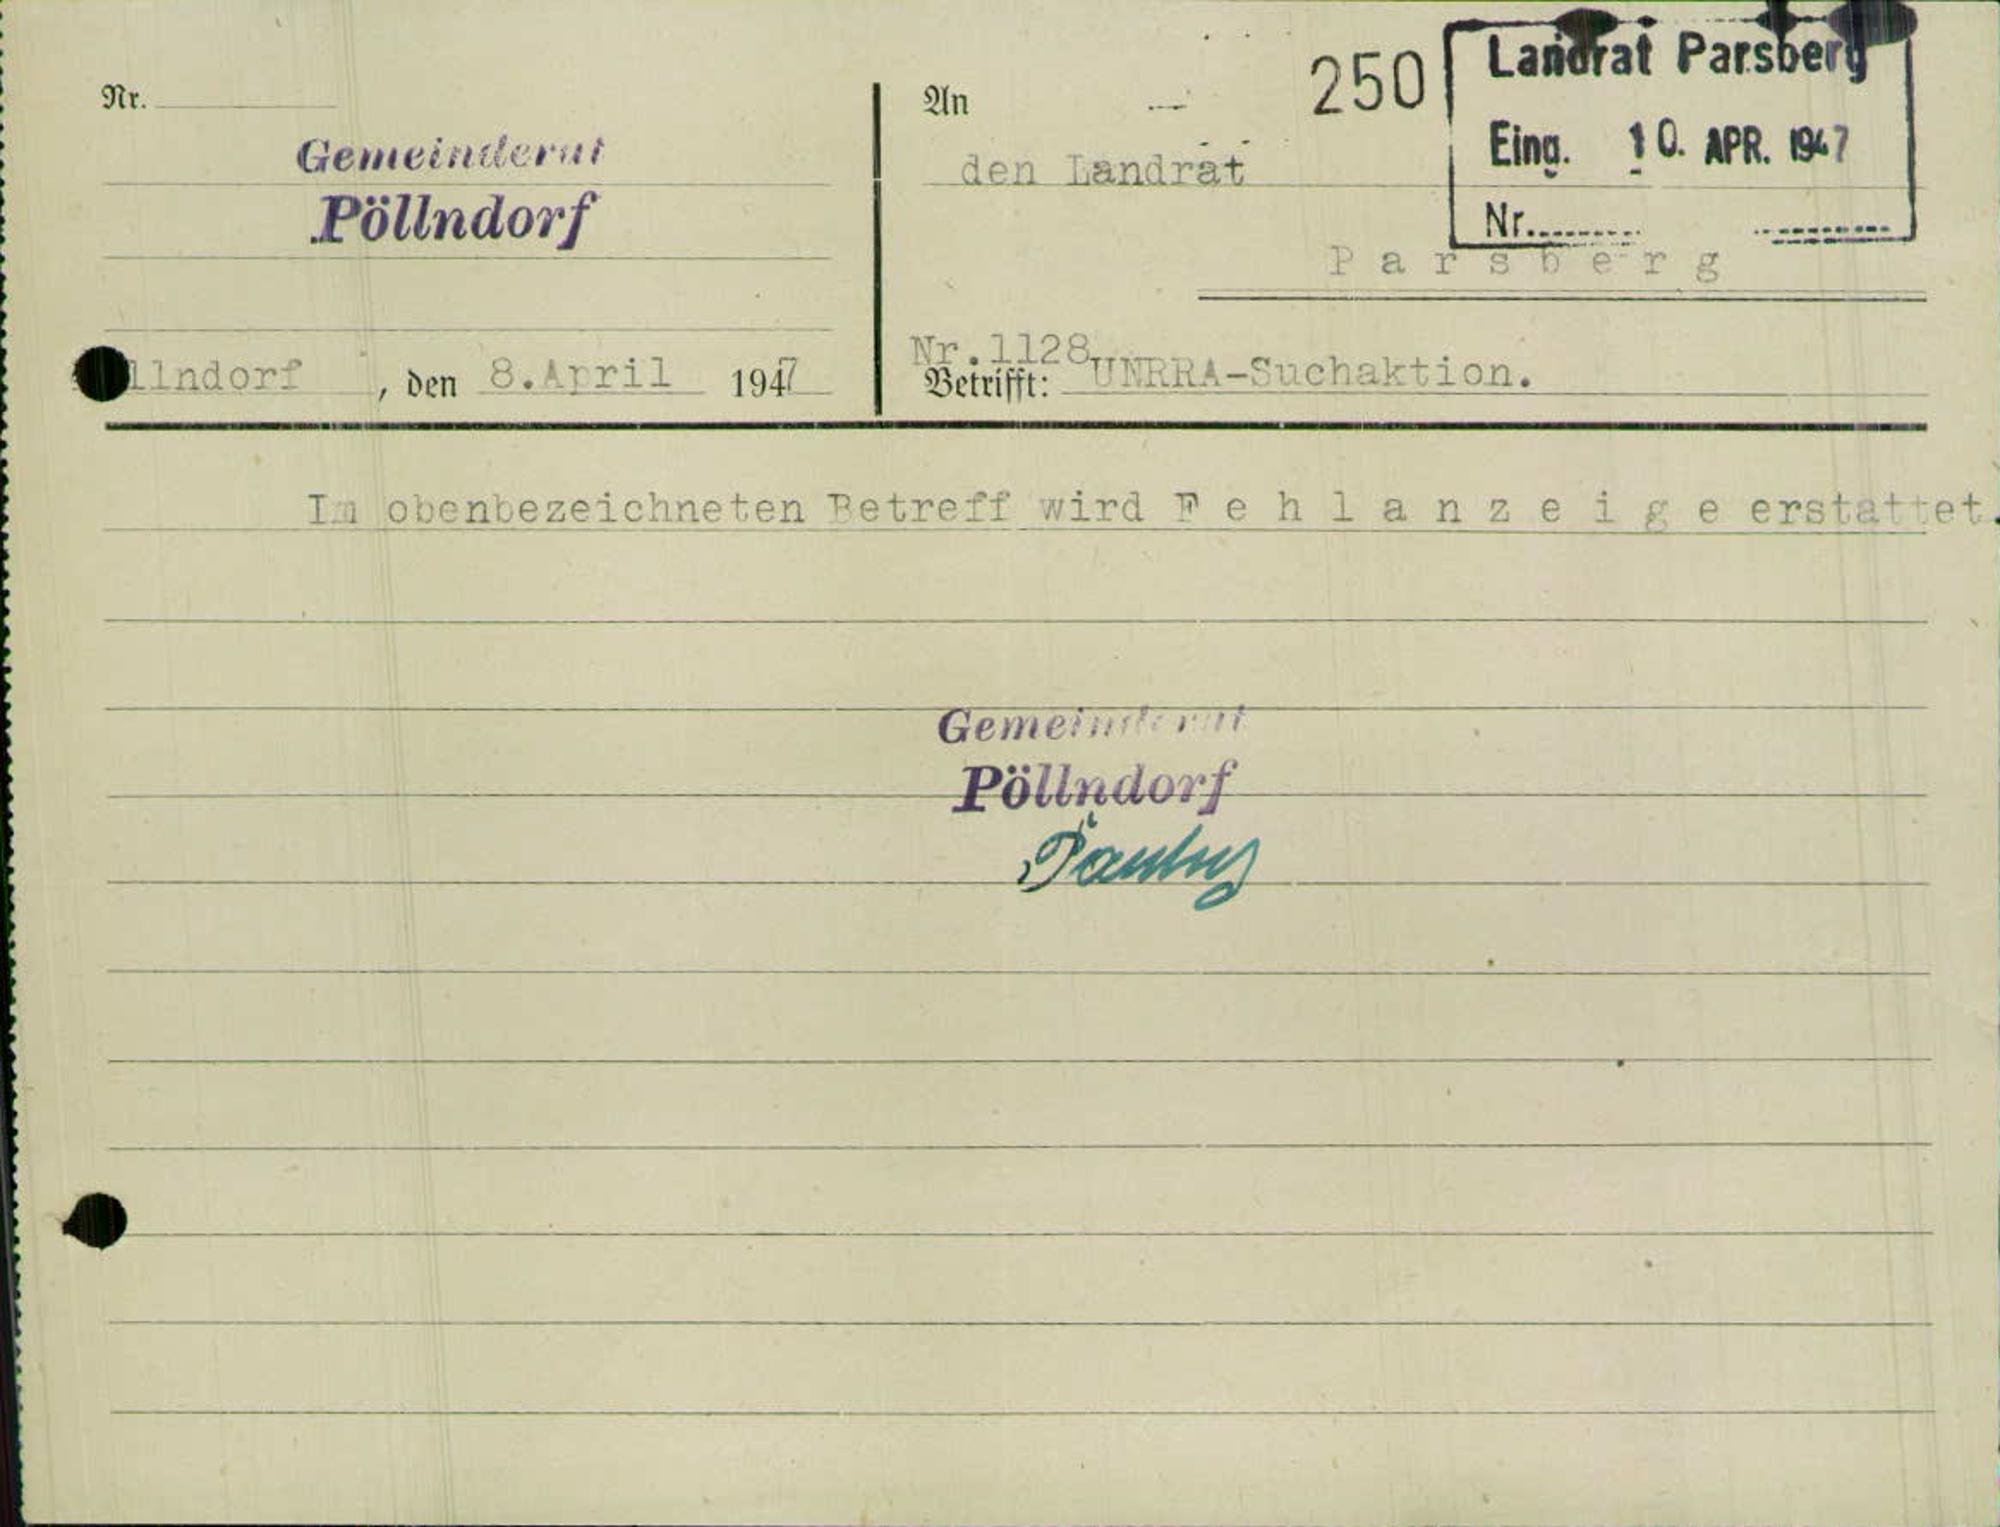 Nr.
Gemeinderat
Pöllndorf
llndorf , den 8.April 1947
An
den Landrat
Parsberg
250
Landrat Parsberg
Eing. 10. APR. 1947
Nr.
Nr.1128
Betrifft: UNRRA-Suchaktion.
Im obenbezeichneten Betreff wird F e h l a n z e i g e erstattet.
Gemeinderat
Pöllndorf